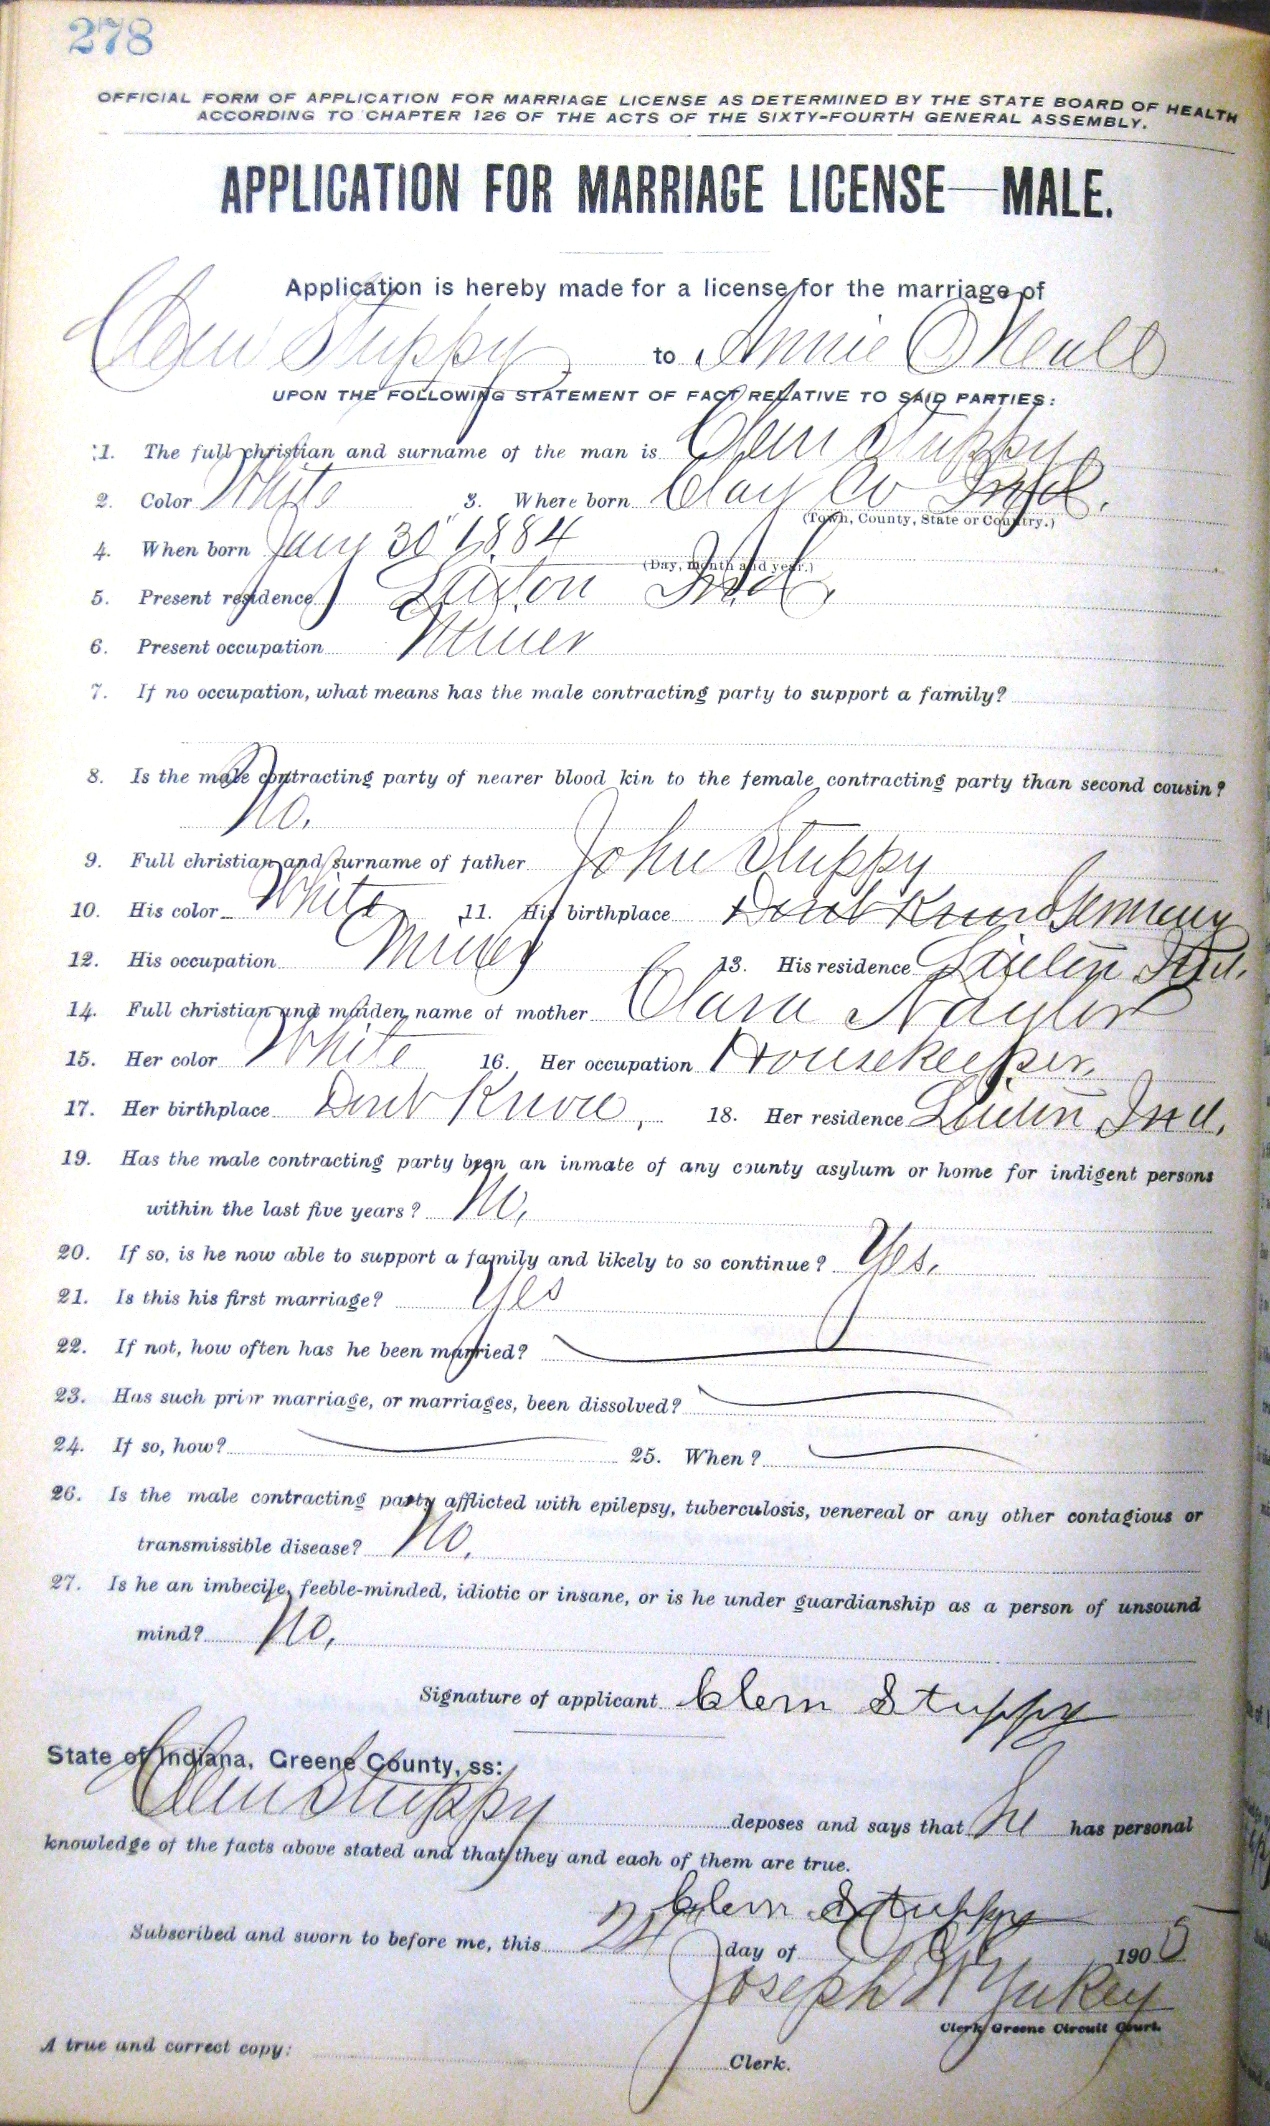 278
OFFICIAL FORM OF APPLICATION FOR MARRIAGE LICENSE AS DETERMINED BY THE STATE BOARD OF HEALTH
ACCORDING TO CHAPTER 126 OF THE ACTS OF THE SIXTY-FOURTH GENERAL ASSEMBLY.
APPLICATION FOR MARRIAGE LICENSE—MALE.
Application is hereby made for a license for the marriage of
Clem Stuppy to Annie O Neall
UPON THE FOLLOWING STATEMENT OF FACT RELATIVE TO SAID PARTIES:
1. The full christian and surname of the man is Clem Stuppy
2. Color White 3. Where born Clay Co Ind.
(Town, County, State or Country.)
4. When born Jany 30" 1884
(Day, month and year.)
5. Present residence Ind.
6. Present occupation Miner
7. If no occupation, what means has the male contracting party to support a family?
8. Is the male contracting party of nearer blood kin to the female contracting party than second cousin?
No.
9. Full christian and surname of father John Stuppy
10. His color White 11. His birthplace Dont Know Germany
12. His occupation Miner 13. His residence Ind.
14. Full christian and maiden name of mother Clara Naylor
15. Her color White 16. Her occupation Housekeeper.
17. Her birthplace Dont Know, 18. Her residence Ind.
19. Has the male contracting party been an inmate of any county asylum or home for indigent persons
within the last five years? No.
20. If so, is he now able to support a family and likely to so continue? Yes.
21. Is this his first marriage? Yes
22. If not, how often has he been married?
23. Has such prior marriage, or marriages, been dissolved?
24. If so, how? 25. When?
26. Is the male contracting party afflicted with epilepsy, tuberculosis, venereal or any other contagious or
transmissible disease? No.
27. Is he an imbecile, feeble-minded, idiotic or insane, or is he under guardianship as a person of unsound
mind? No.
Signature of applicant Clem Stuppy
State of Indiana, Greene County, ss:
Clem Stuppy deposes and says that he has personal
knowledge of the facts above stated and that they and each of them are true.
Clem Stuppy
Subscribed and sworn to before me, this day of 190
Joseph W Yakey
Clerk Greene Circuit Court.
A true and correct copy: Clerk.